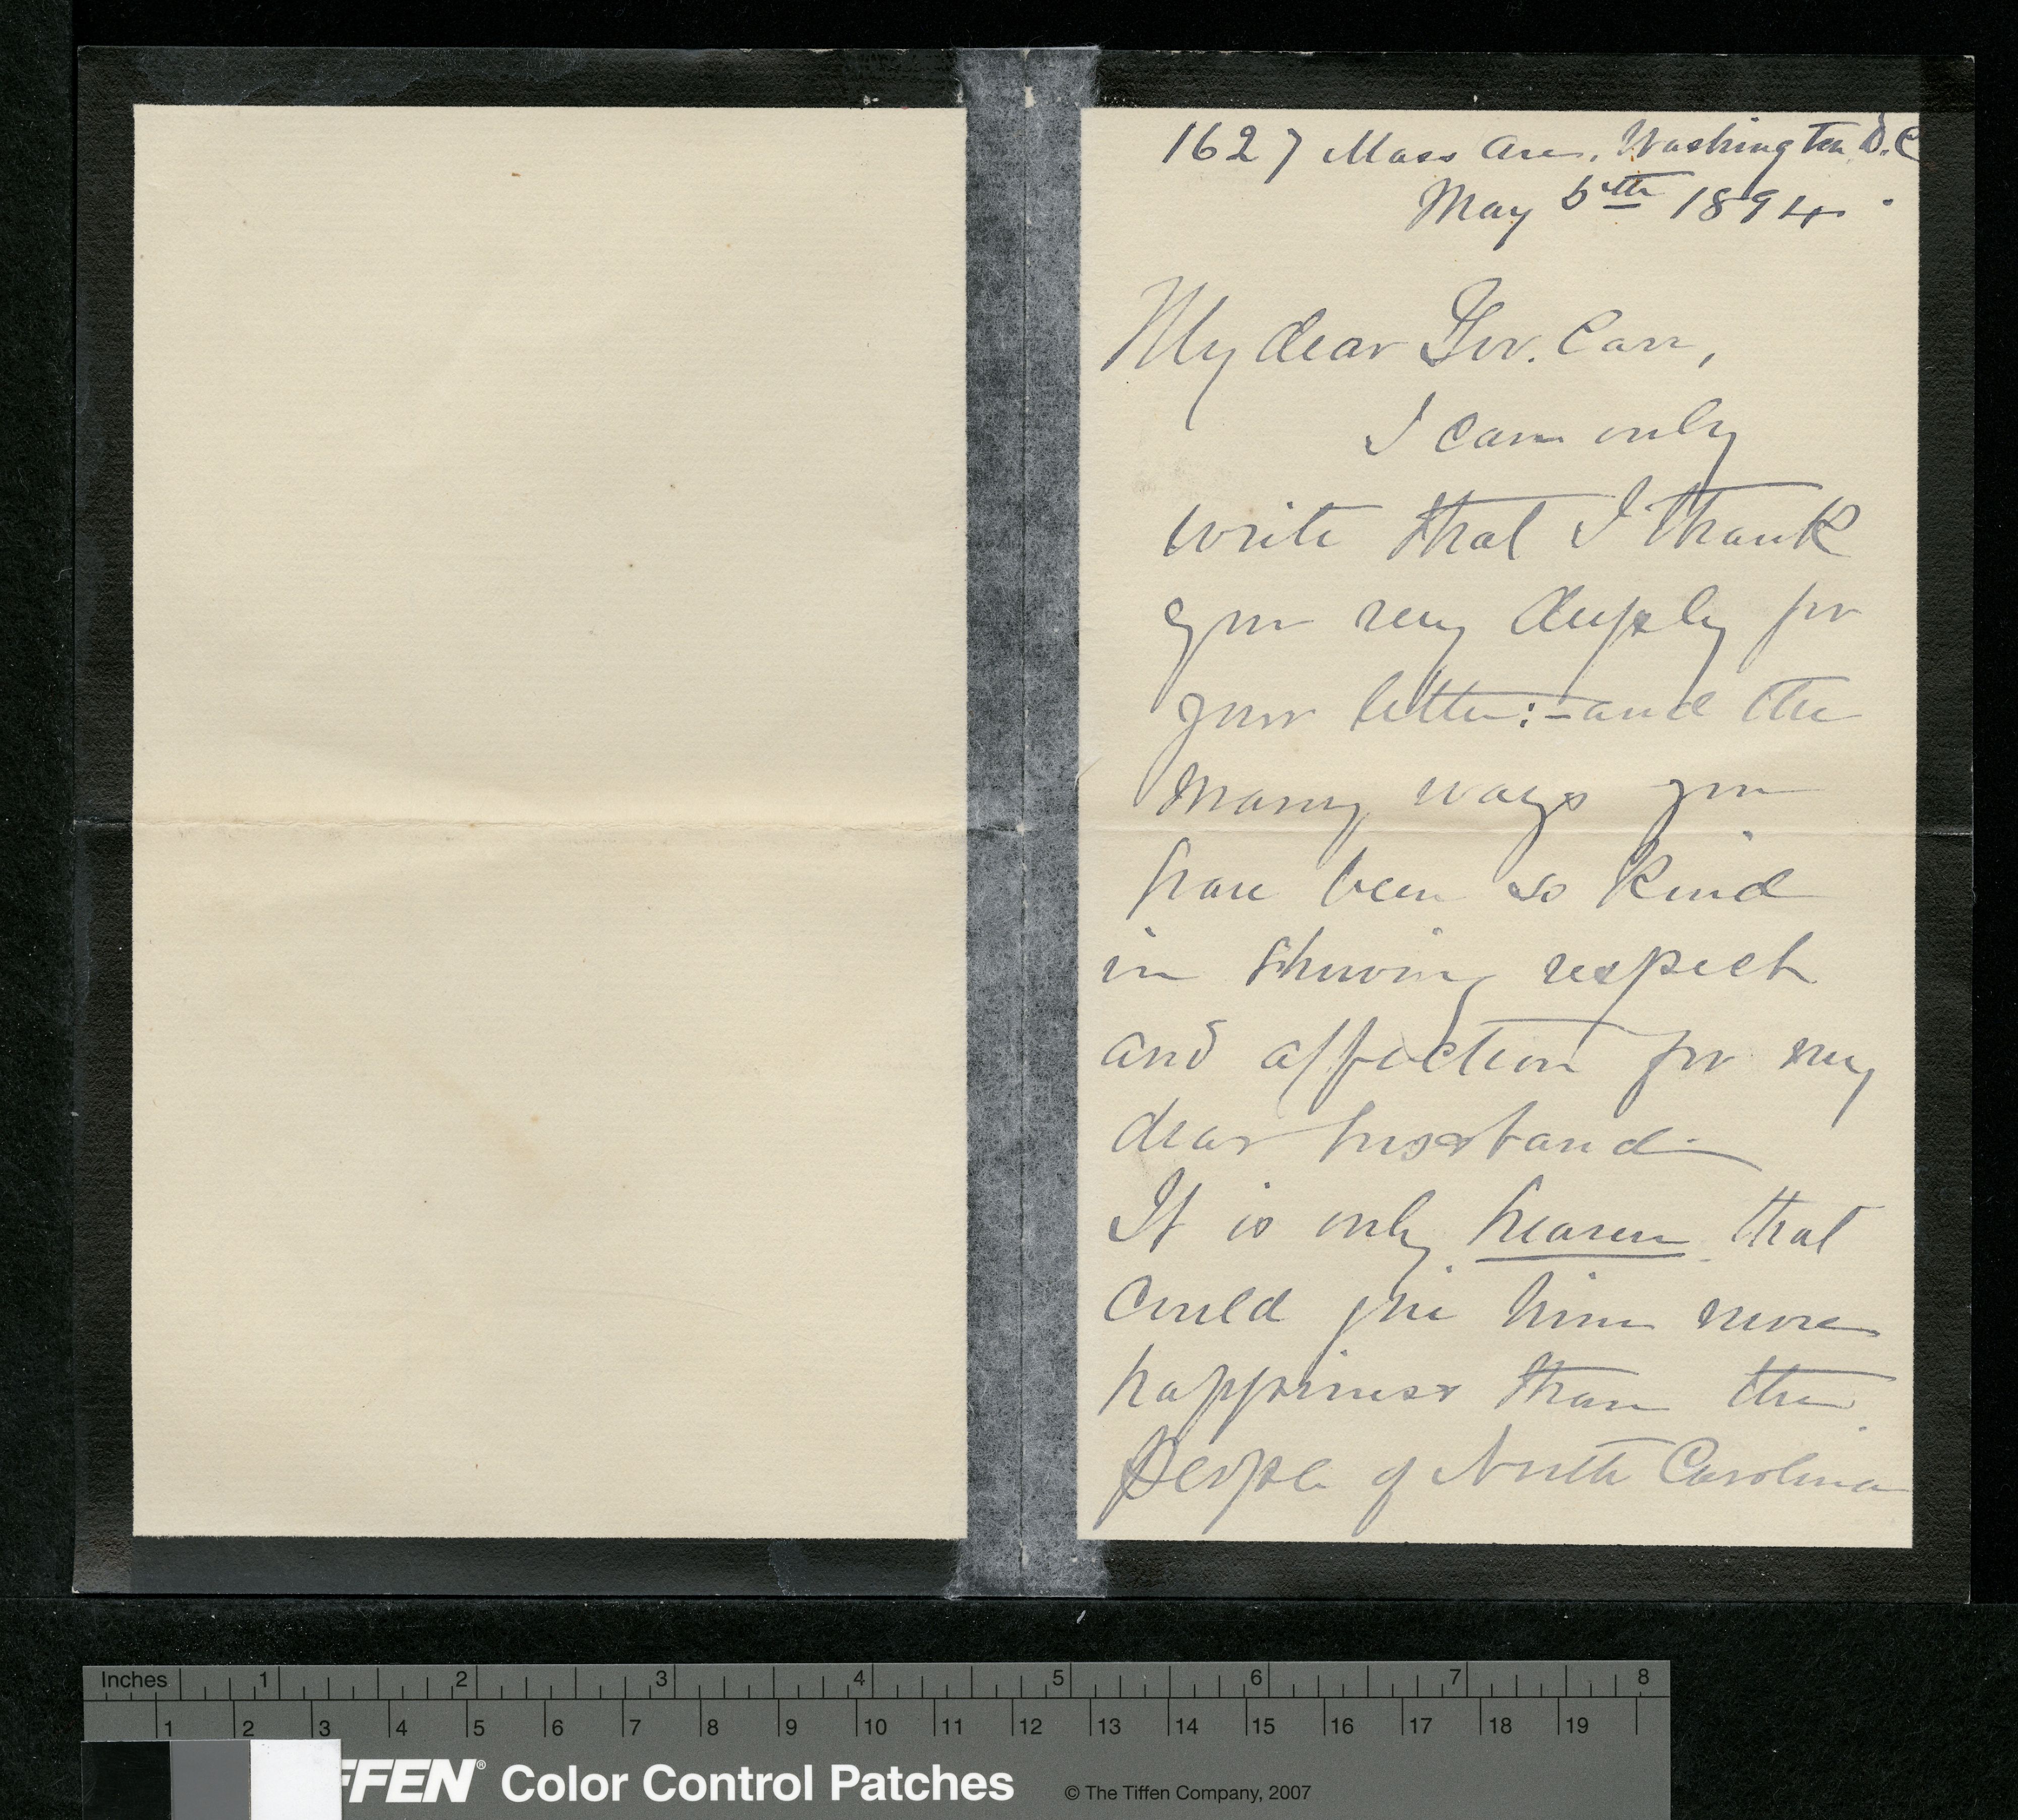 1627 Mass Ave. Washington D.C
May 5th 1894.
My dear Gov. Carr,
I can only
write that I thank
you very deeply for
your letter:- and the
many ways you
have been so kind
in showing respect
and affection for my
dear husband-
It is only heaven that
could give him more
happiness than the
People of North Carolina
Inches 1 2 3 4 5 6 7 8
1 2 3 4 5 6 7 8 9 10 11 12 13 14 15 16 17 18 19
FFEN® Color Control Patches © The Tiffen Company, 2007